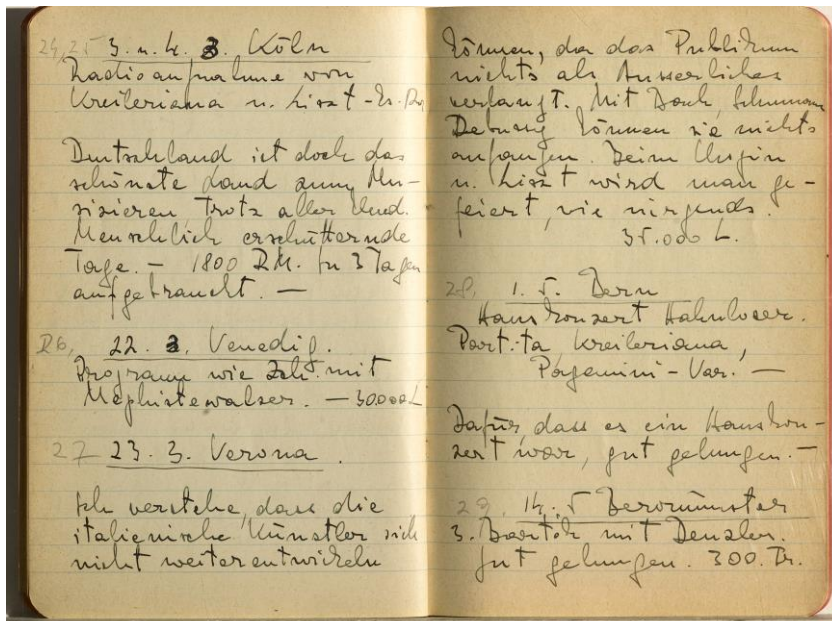 24, 25 3. u. 4. 3. Köln
Radioaufnahme von
Kreileriana u. Liszt - Es.
Deutschland ist doch das
schönste Land zum Mu-
sizieren, trotz aller Elend.
Menschlich erschütternde
Tage. — 1800 RM. in 3 Tagen
aufgebraucht. —
26, 22. 3. Venedig.
Programm wie mit
Mephistowalzer. — 30.000 L
27 23. 3. Verona.
Ich verstehe, dass die
italienische Künstler sich
nicht weiterentwickeln
können, da das Publikum
nichts als Äusserliches
verlangt. Mit Bach, Schumann
Debussy können sie nichts
anfangen. Beim Chopin
u. Liszt wird man ge-
feiert, wie nirgends.
35.000 L.
28, 1. 5. Bern
Hauskonzert Hahnloser.
Partita Kreileriana,
Paganini - Var. —
Dafür, dass es ein Hauskon-
zert war, gut gelungen. —
29, 14. 5 Beromünster
3. Bartók mit Denzler.
gut gelungen. 300. Fr.